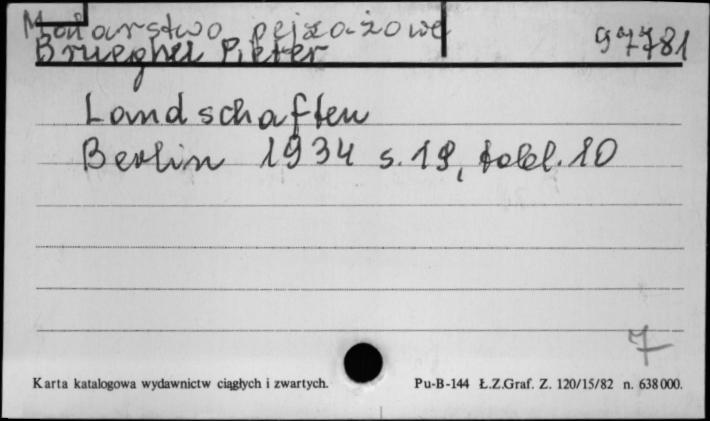 Malarstwo pejzażowe
97781
Brueghel Pieter
Landschaften
Berlin 1934 s. 19, tabl. 10
7
Karta katalogowa wydawnictw ciągłych i zwartych.
Pu-B-144 Ł.Z.Graf. Z. 120/15/82 n. 638000.